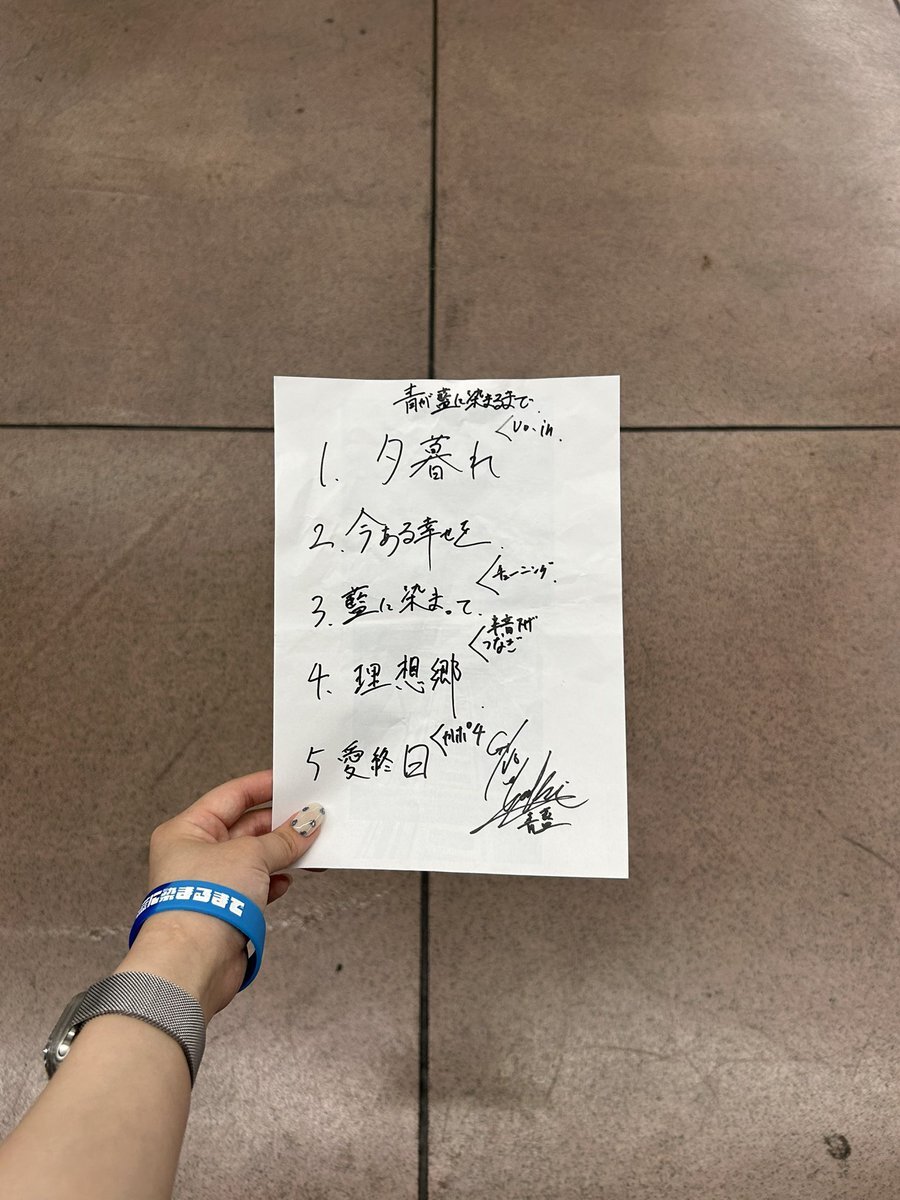 青が藍に染まるまで
1. 夕暮れ
<Vo.in.
2. 今ある幸せを.
3. 藍に染まって.
<チューニング.
4. 理想郷.
<半音下げ
つなぎ
5 愛終日
<カポ4
Gt/Vo
青吾
に染まるまで